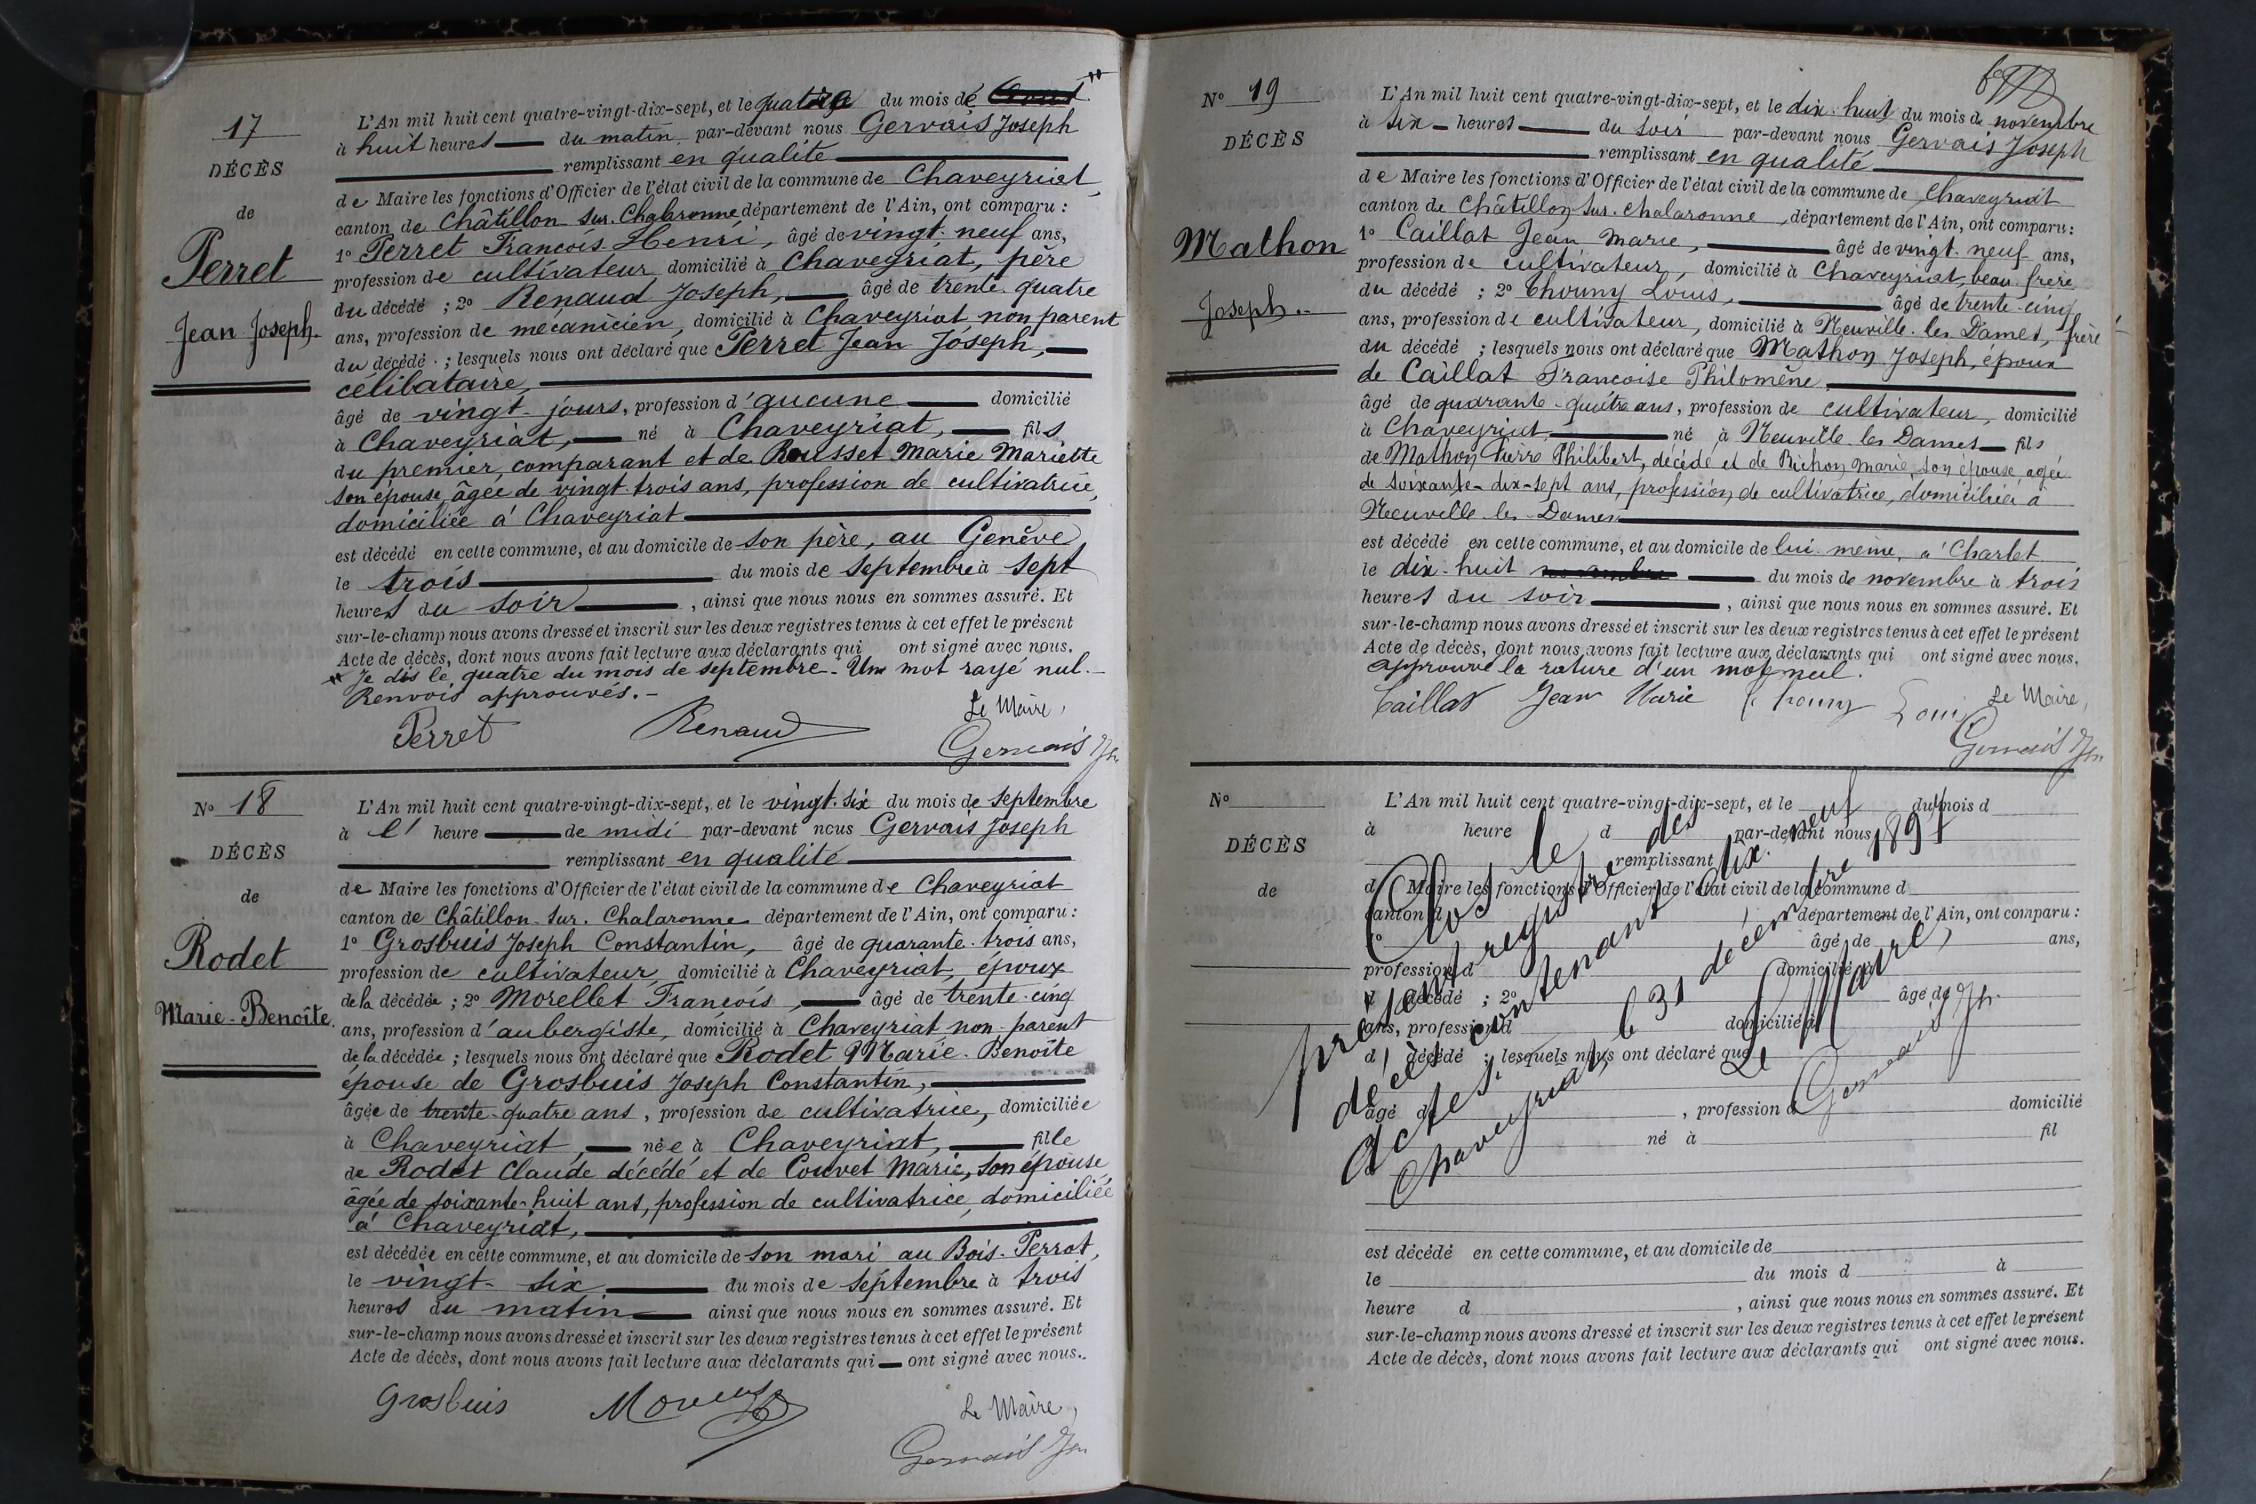 17
DÉCÈS
de
Perret
Jean Joseph.
L'An mil huit cent quatre-vingt-dix-sept, et le quatre du mois de
à huit heures du matin par-devant nous Gervais Joseph
remplissant en qualité
de Maire les fonctions d'Officier de l'état civil de la commune de Chaveyriat,
canton de Châtillon-sur-Chalaronne département de l'Ain, ont comparu :
1° Perret François-Henri, âgé de vingt-neuf ans,
profession de cultivateur, domicilié à Chaveyriat, père
du décédé ; 2° Renaud Joseph, âgé de trente-quatre
ans, profession de mécanicien, domicilié à Chaveyriat non parent
du décédé ; lesquels nous ont déclaré que Perret Jean Joseph,
célibataire,
âgé de vingt-jours, profession d'aucune domicilié
à Chaveyriat, né à Chaveyriat, fils
du premier comparant et de Rousset Marie Mariette
son épouse, âgée de vingt-trois ans, profession de cultivatrice,
domiciliée à Chaveyriat
est décédé en cette commune, et au domicile de son père, au Genève
le trois du mois de septembre à sept
heures du soir, ainsi que nous nous en sommes assuré. Et
sur-le-champ nous avons dressé et inscrit sur les deux registres tenus à cet effet le présent
Acte de décès, dont nous avons fait lecture aux déclarants qui ont signé avec nous.
Je dis le quatre du mois de septembre - Un mot rayé nul.-
Renvois approuvés.-
Perret Renaud Le Maire,
Gervais Jh
N° 18
DÉCÈS
de
Rodet
Marie-Benoîte.
L'An mil huit cent quatre-vingt-dix-sept, et le vingt-six du mois de septembre
à l' heure de midi par-devant nous Gervais Joseph
remplissant en qualité
de Maire les fonctions d'Officier de l'état civil de la commune de Chaveyriat
canton de Châtillon-sur-Chalaronne département de l'Ain, ont comparu :
1° Grosbuis Joseph Constantin, âgé de quarante-trois ans,
profession de cultivateur, domicilié à Chaveyriat, époux
de la décédée ; 2° Morellet François, âgé de trente-cinq
ans, profession d'aubergiste, domicilié à Chaveyriat non-parent
de la décédée ; lesquels nous ont déclaré que Rodet Marie-Benoîte
épouse de Grosbuis Joseph Constantin,
âgée de trente-quatre ans, profession de cultivatrice, domiciliée
à Chaveyriat, née à Chaveyriat, fille
de Rodet Claude décédé et de Couvet Marie, son épouse
âgée de soixante-huit ans, profession de cultivatrice, domiciliée
à Chaveyriat,
est décédée en cette commune, et au domicile de son mari au Bois-Perrat,
le vingt-six du mois de septembre à trois
heures du matin ainsi que nous nous en sommes assuré. Et
sur-le-champ nous avons dressé et inscrit sur les deux registres tenus à cet effet le présent
Acte de décès, dont nous avons fait lecture aux déclarants qui ont signé avec nous.
Grosbuis Le Maire,
Gervais Jh
N° 19
DÉCÈS
Mathon
Joseph.-
L'An mil huit cent quatre-vingt-dix-sept, et le dix-huit du mois de novembre
à six heures du soir par-devant nous Gervais Joseph
remplissant en qualité
de Maire les fonctions d'Officier de l'état civil de la commune de Chaveyriat
canton de Châtillon-sur-Chalaronne, département de l'Ain, ont comparu :
1° Caillat Jean Marie, âgé de vingt-neuf ans,
profession de cultivateur, domicilié à Chaveyriat, beau-frère
du décédé ; 2° Thouny Louis, âgé de trente-cinq
ans, profession de cultivateur, domicilié à Neuville-les-Dames, frère
du décédé ; lesquels nous ont déclaré que Mathon Joseph, époux
de Caillat Françoise Philomène
âgé de quarante-quatre ans, profession de cultivateur, domicilié
à Chaveyriat, né à Neuville les Dames fils
de Mathon Pierre Philibert, décédé et de Bichon Marie son épouse agée
de soixante-dix-sept ans, profession de cultivatrice, domiciliée à
Neuville-les-Dames
est décédé en cette commune, et au domicile de lui-même, à Charlet
le dix-huit novembre du mois de novembre à trois
heures du soir, ainsi que nous nous en sommes assuré. Et
sur-le-champ nous avons dressé et inscrit sur les deux registres tenus à cet effet le présent
Acte de décès, dont nous avons fait lecture aux déclarants qui ont signé avec nous.
approuvé la rature d'un mot nul.
Caillat Jean Marie Thouny Louis Le Maire,
Gervais Jh
N°
DÉCÈS
de
L'An mil huit cent quatre-vingt-dix-sept, et le du mois d
à heure d par-devant nous
remplissant
d Maire les fonctions d'Officier de l'état civil de la commune d
canton d département de l'Ain, ont comparu :
1° âgé de ans,
profession d domicilié à
d décédé ; 2° âgé de
ans, profession d domicilié à
d décédé ; lesquels nous ont déclaré que
âgé d, profession d domicilié
à né à fil
est décédé en cette commune, et au domicile de
le du mois d à
heure d, ainsi que nous nous en sommes assuré. Et
sur-le-champ nous avons dressé et inscrit sur les deux registres tenus à cet effet le présent
Acte de décès, dont nous avons fait lecture aux déclarants qui ont signé avec nous.
Clos le
présent registre des
décès contenant dix-neuf
actes.
Chaveyriat, le 31 décembre 1897
Le Maire,
Gervais Jh.